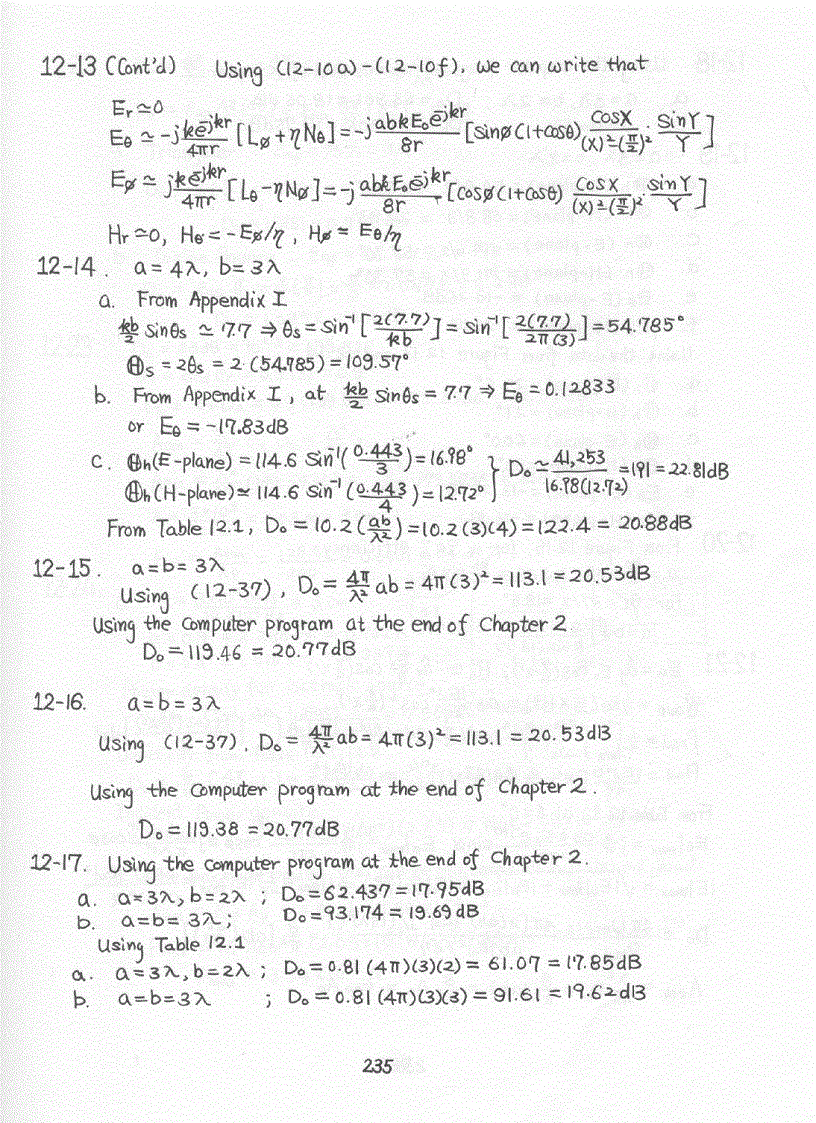 12-13 (Cont'd) Using (12-10a)-(12-10f), we can write that
Er≃0
Eθ ≃ -j ke^-jkr/4πr [Lø + ηNθ] = -j abkE₀e^-jkr/8r [sinø(1+cosθ) cosX/((X)²-(π/2)²) · sinY/Y]
Eø ≃ j ke^-jkr/4πr [Lθ - ηNø] = -j abkE₀e^-jkr/8r · [cosø(1+cosθ) cosX/((X)²-(π/2)²) · sinY/Y]
Hr ≃0, Hθ ≃ -Eø/η, Hø ≃ Eθ/η
12-14. a = 4λ, b = 3λ
a. From Appendix I
kb/2 sinθs ≃ 7.7 ⇒ θs = sin⁻¹[2(7.7)/kb] = sin⁻¹[2(7.7)/2π(3)] = 54.785°
Θs = 2θs = 2(54.785) = 109.57°
b. From Appendix I, at kb/2 sinθs = 7.7 ⇒ Eθ = 0.12833
or Eθ = -17.83dB
c. Θh(E-plane) = 114.6 sin⁻¹(0.443/3) = 16.98°
Θh(H-plane) ≃ 114.6 sin⁻¹(0.443/4) = 12.72° } D₀ ≃ 41,253/16.98(12.72) = 191 = 22.81dB
From Table 12.1, D₀ = 10.2(ab/λ²) = 10.2(3)(4) = 122.4 = 20.88dB
12-15. a=b=3λ
Using (12-37), D₀ = 4π/λ² ab = 4π(3)² = 113.1 = 20.53dB
Using the Computer program at the end of Chapter 2
D₀ = 119.46 = 20.77dB
12-16. a=b=3λ
Using (12-37), D₀ = 4π/λ² ab = 4π(3)² = 113.1 = 20.53dB
Using the Computer program at the end of Chapter 2.
D₀ = 119.38 = 20.77dB
12-17. Using the computer program at the end of Chapter 2.
a. a=3λ, b=2λ ; D₀ = 62.437 = 17.95dB
b. a=b=3λ ; D₀ = 93.174 = 19.69 dB
Using Table 12.1
a. a=3λ, b=2λ ; D₀ = 0.81(4π)(3)(2) = 61.07 = 17.85dB
b. a=b=3λ ; D₀ = 0.81(4π)(3)(3) = 91.61 = 19.62dB
235